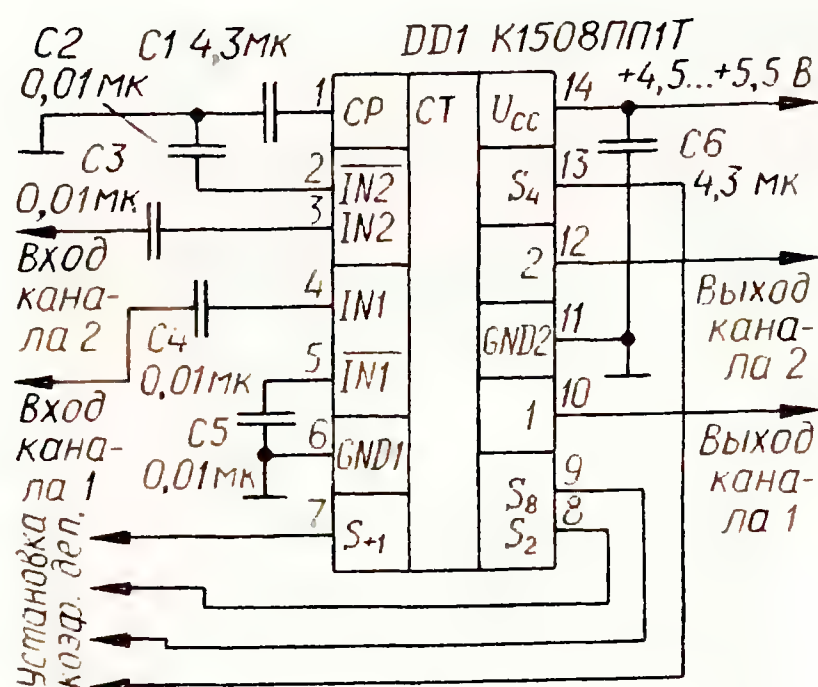 C2
C1 4,3мк
DD1 К1508ПП1Т
0,01мк
C3
0,01мк
Вход
кана-
ла 2
C4
0,01мк
Вход
кана-
ла 1
C5
0,01мк
Установка
коэф. дел.
1
2
3
4
5
6
7
CP
IN2
IN2
IN1
IN1
GND1
S+1
CT
UCC
S4
2
GND2
1
S8
S2
14
13
12
11
10
9
8
+4,5...+5,5 В
C6
4,3 мк
Выход
кана-
ла 2
Выход
кана-
ла 1